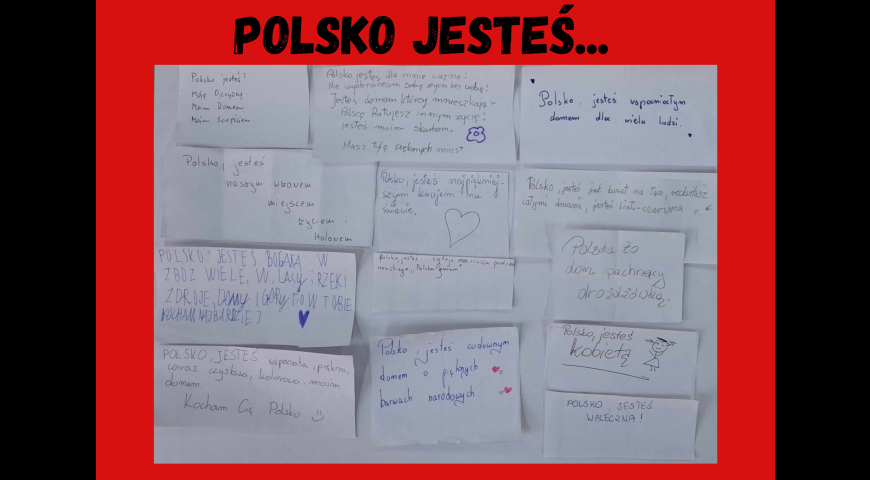 POLSKO JESTEŚ...
Polsko jesteś?
Moją Ojczyzną
Moim Domem
Moim
Polsko jesteś dla mnie ważna!
Nie wyobrażam sobie życia bez ciebie!
Jesteś domem który mnieszkają w
Polsce Ratujesz innym życie!
jesteś moim skarbem.
Masz tyle pięknych miast
Polsko, jesteś wspaniałym
domem dla wielu ludzi.
Polsko, jesteś
naszym
miejscem
życiem i
kolorem
Polsko, jesteś najpiękniej-
szym krajem na
świecie.
Polsko, jesteś jak kwiat na łące, rozkwitasz
całymi dniami, jesteś biało-czerwona
POLSKO JESTEŚ BOGATA W
ZBÓŻ WIELE, W LASY i RZEKI
ZDROJE, DOMY I GÓRY TO W TOBIE
KOCHAM NAJBARDZIEJ
Polsko jesteś
Polska to
dom pachnący
drożdżówką.
POLSKO, JESTEŚ wspaniała, piękna,
coraz czystsza, kolorowa, moim
domem
Kocham Cię Polsko
Polsko, jesteś cudownym
domem o pięknych
barwach narodowych.
Polsko, jesteś
Kobietą
POLSKO, JESTEŚ
WALECZNA!